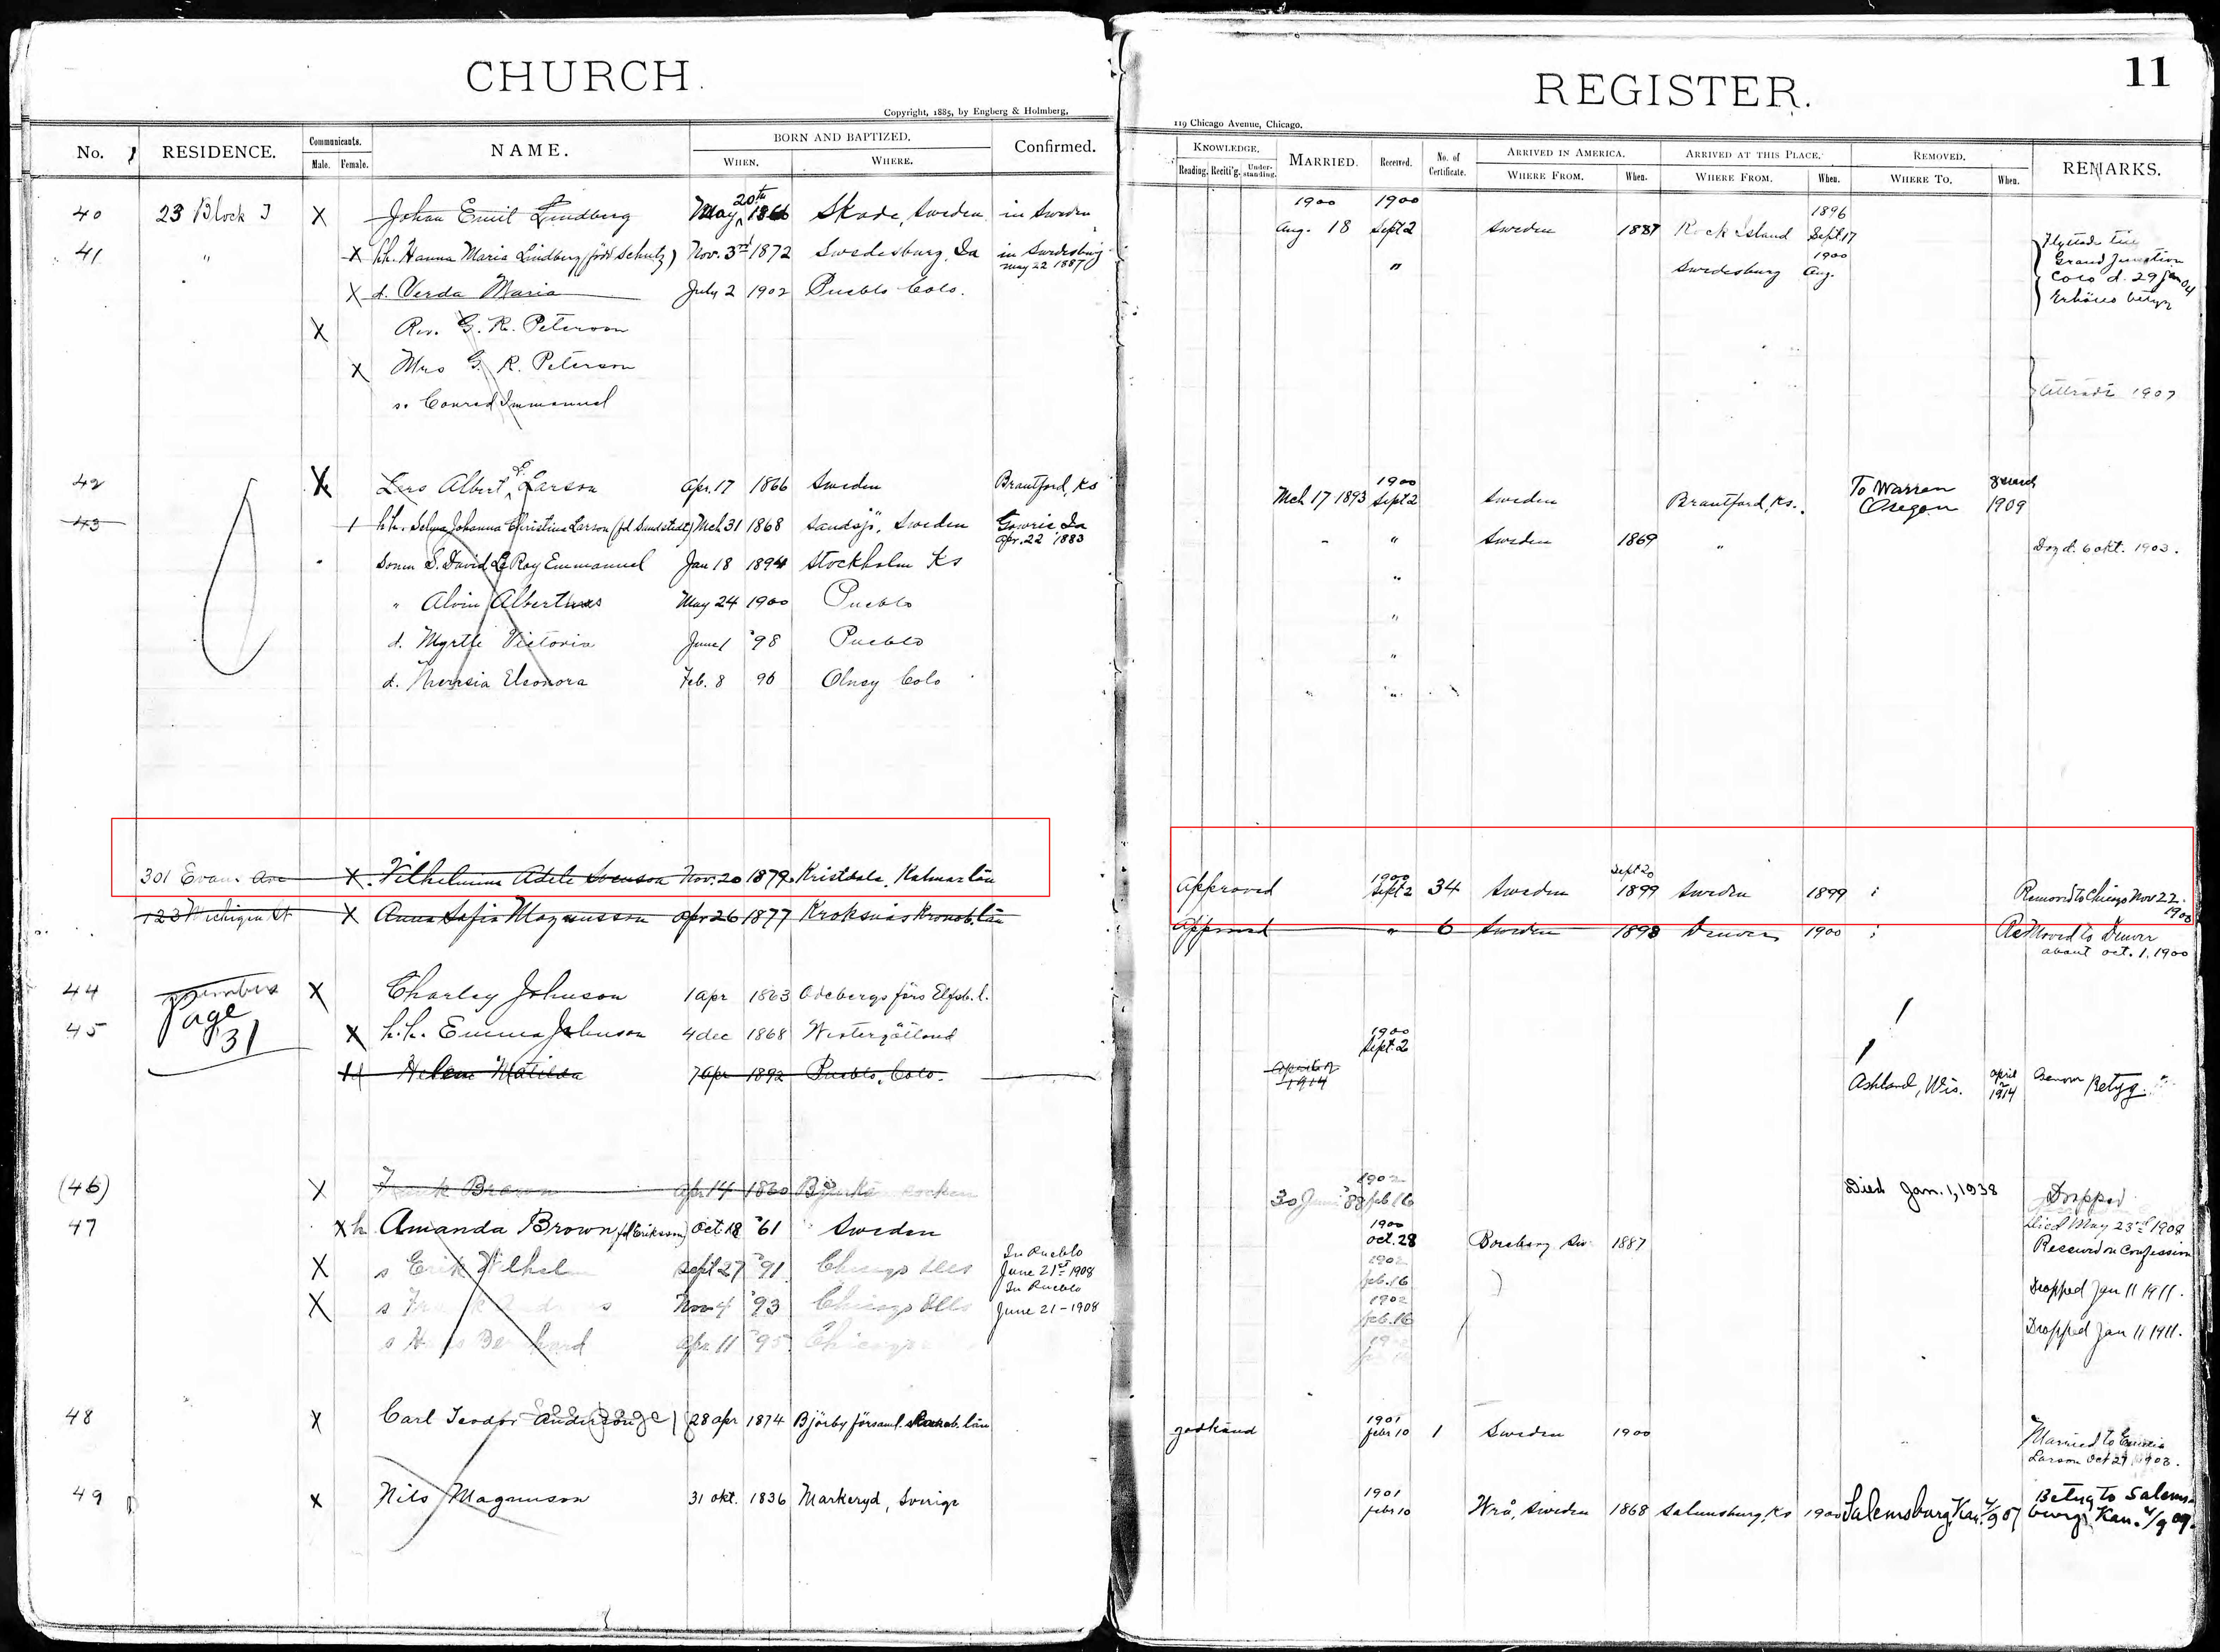 CHURCH.
Copyright, 1885, by Engberg & Holmberg,
No. RESIDENCE. Communicants. Male. Female. NAME. BORN AND BAPTIZED. WHEN. WHERE. Confirmed.
40 23 Block I X Johan Emil Lindberg May 20th 1866 Skade, Sweden in Sweden
41 " X h.h. Hanna Maria Lindberg (född Schutz) Nov. 3rd 1872 Swedesburg, Ia in Swedesburg May 22 1887
X d. Verda Maria July 2 1902 Pueblo Colo.
X Rev. G. R. Peterson
X Mrs G. R. Peterson
s. Conrad Immanuel
42 X Lars Albert Larson Apr. 17 1866 Sweden Brantford, Ks
43 1 h.h. Selma Johanna Christina Larson (fd Sundstedt) Mch 31 1868 Sandsjö, Sweden Gowrie Ia Apr. 22 1883
Sonen S. David LeRoy Emmanuel Jan 18 1894 Stockholm Ks
" Alvin Albertus May 24 1900 Pueblo
d. Myrtle Victoria June 1 '98 Pueblo
d. Theresia Eleonora Feb. 8 96 Olney Colo
301 Evans Ave X Vilhelmina Adele Svenson Nov. 20 1879 Kristdala, Kalmar län
123 Michigan St X Anna Sofia Magnusson Apr 26 1877 Kroksnäs Kronob. län
44 members Page 31 X Charley Johnson 1 apr 1863 Odebergs förs Elfsb. l.
45 X h.h. Emma Johnson 4 dec 1868 Westergötland
Helen Matilda 7 apr 1892 Pueblo, Colo.
(46) X Frank Brown Apr 14 1860 socken
47 X h Amanda Brown (fd Erikson) Oct. 18 '61 Sweden
X s Erik Wilhelm Sept 27 '91 Chicago Ills In Pueblo June 21st 1908
X s Nov 4 '93 Chicago Ills In Pueblo June 21-1908
s Apr 11 '95 Chicago
48 X Carl Teodor Anderson 28 apr 1874 Björby församl. län
49 X Nils Magnuson 31 okt. 1836 Markeryd, Sverige
REGISTER.
11
119 Chicago Avenue, Chicago.
KNOWLEDGE. Reading. Reciti'g. Understanding. MARRIED. Received. No. of Certificate. ARRIVED IN AMERICA. WHERE FROM. When. ARRIVED AT THIS PLACE. WHERE FROM. When. REMOVED. WHERE TO. When. REMARKS.
1900 Aug. 18 1900 Sept 2 Sweden 1887 Rock Island 1896 Sept 17 Flyttade till
" Swedesburg 1900 Aug. Grand Junction
Colo d. 29 jan 04
Erhöllo betyg
Utträdt 1907
Mch 17 1893 1900 Sept 2 Sweden Brantford, Ks. To Warren Oregon 1909
" Sweden 1869 " Dog d. 6 okt. 1903.
"
"
"
" "
Approved 1900 Sept 2 34 Sweden Sept 20 1899 Sweden 1899 Removed to Chicago Nov 22. 1900
Approved " 6 Sweden 1898 Denver 1900 Removed to Denver
about oct. 1, 1900
1900
Sept. 2
1914 Ashland, Wis. April 1914 Betyg.
30 Juni '88 1902 feb 16 Died Jan. 1, 1938 Dropped
1900 Oct. 28 Sw. 1887 Died May 23rd 1908
Received on Confession
1902 feb. 16 Dropped Jan 11 1911.
1902 feb. 16 Dropped Jan 11 1911.
godkänd 1901 febr 10 1 Sweden 1900 Married to
Larson Oct 29 1903.
1901 febr 10 Wrå, Sweden 1868 Salemsburg, Ks 1900 Salemsburg, Kan. Betyg to Salemsburg, Kan.